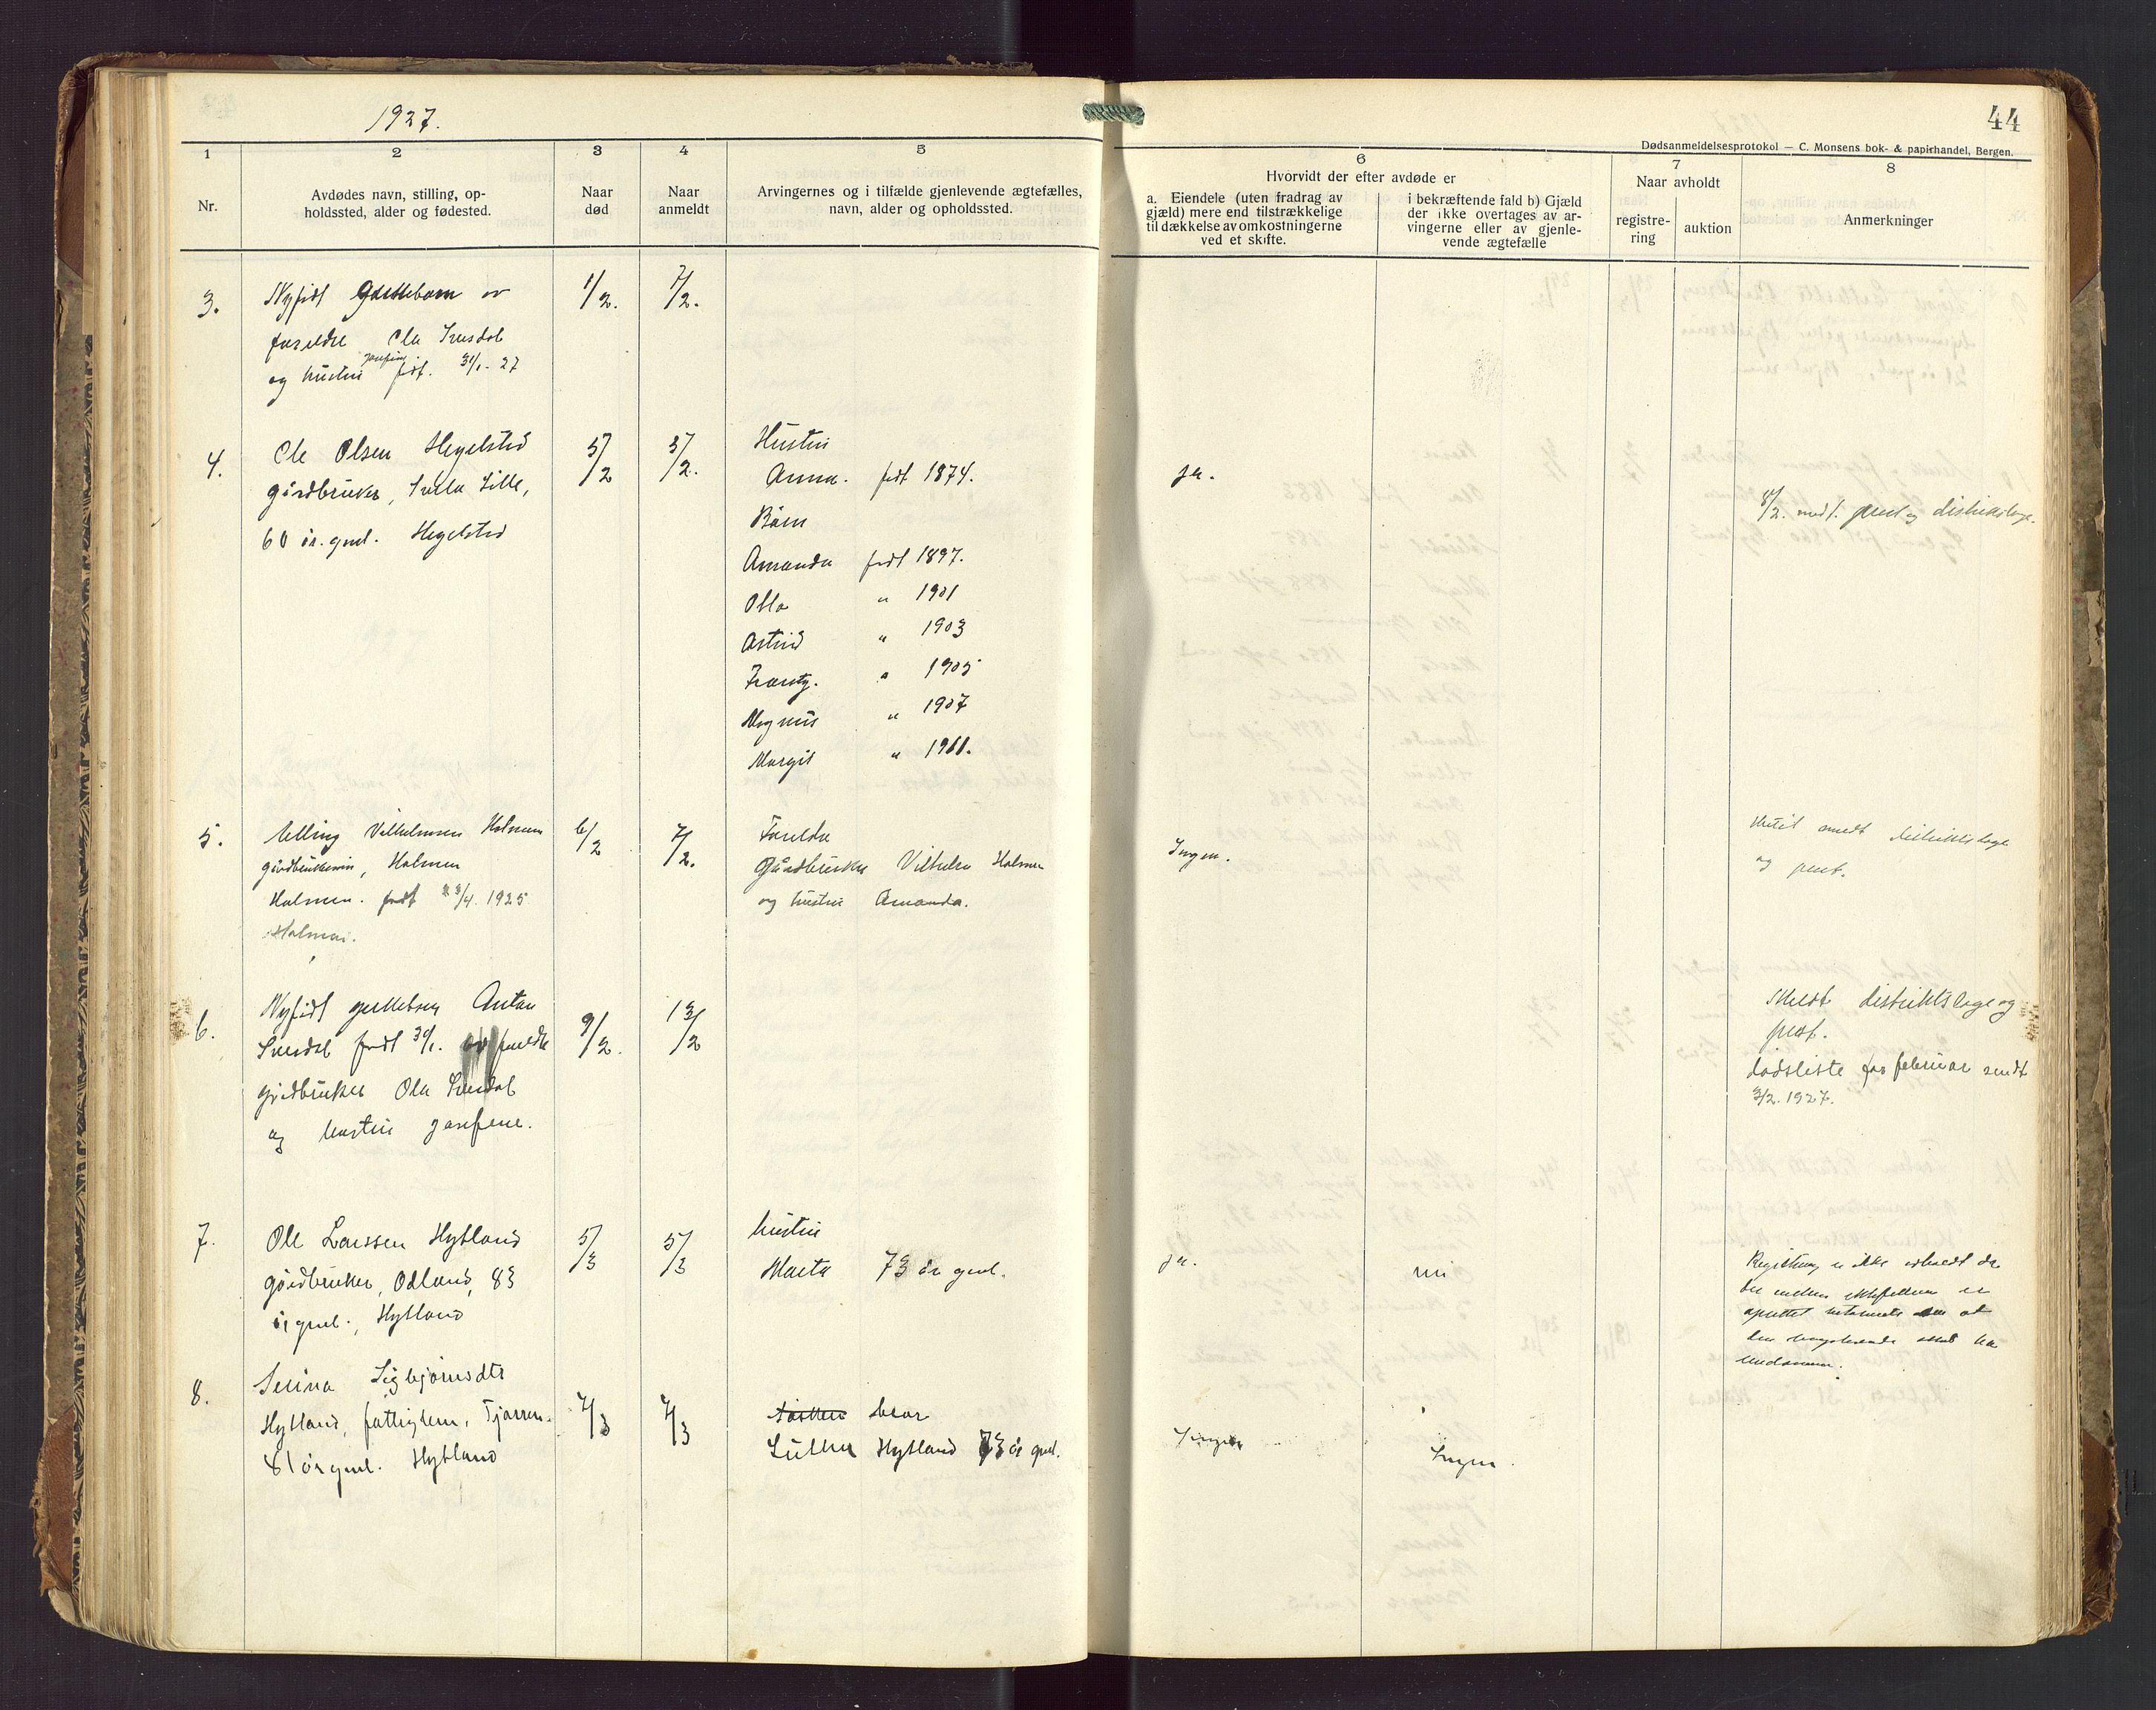 1927.
44
Dødsanmeldelsesprotokol — C. Monsens bok- & papirhandel, Bergen.
1
2
3
4
5
6
7
8
Nr.
Avdødes navn, stilling, op-
holdssted, alder og fødested.
Naar
død
Naar
anmeldt
Arvingernes og i tilfælde gjenlevende ægtefælles,
navn, alder og opholdssted.
Hvorvidt der efter avdøde er
a. Eiendele (uten fradrag av
gjæld) mere end tilstrækkelige
til dækkelse av omkostningerne
ved et skifte.
i bekræftende fald b) Gjæld
der ikke overtages av ar-
vingerne eller av gjenle-
vende ægtefælle
Naar avholdt
registre-
ring
auktion
Anmerkninger
3.
Nyfødt guttebarn av
foreldre Ola
og hustru født. 31/1. 27
1/2.
7/2.
4.
Ole Olsen Hegelstad
gårdbruker, Lille,
60 år. gml. Hegelstad
5/2
5/2.
Hustru
Anna. født 1874.
Børn
Amanda født 1897.
Otto " 1901
Astrid " 1903
" 1905
Magnus " 1907
Margit " 1911.
ja.
8/2. meldt. prest og distriktslæge.
5.
Elling Vilhelmsen Holmen
Holmen
Holmen. født 23/4. 1925
Holmen.
6/2
7/2.
Foreldre
Gårdbruker Vilhelm Holmen
og hustru Amanda.
Ingen.
meldt distriktslæge
og prest.
6.
Nyfødt Anton
født 30/1. foreldre
gårdbruker Ola
og hustru Josefine.
9/2.
13/2
Meldt distriktslæge og
prest.
dødsliste for februar sendt
3/2. 1927.
7.
Ole Larssen Hytland
gårdbruker, Odland, 83
år gml., Hytland
5/3
5/3
hustru
Marta 73 år gml.
ja.
nei
Registrering er ikke avholdt da
8.
Serina Sigbjørnsdtr
Hytland, fattiglem,
81 år gml. Hytland
7/3
7/3
bror
Hytland 73 år gml.
Ingen
Ingen.